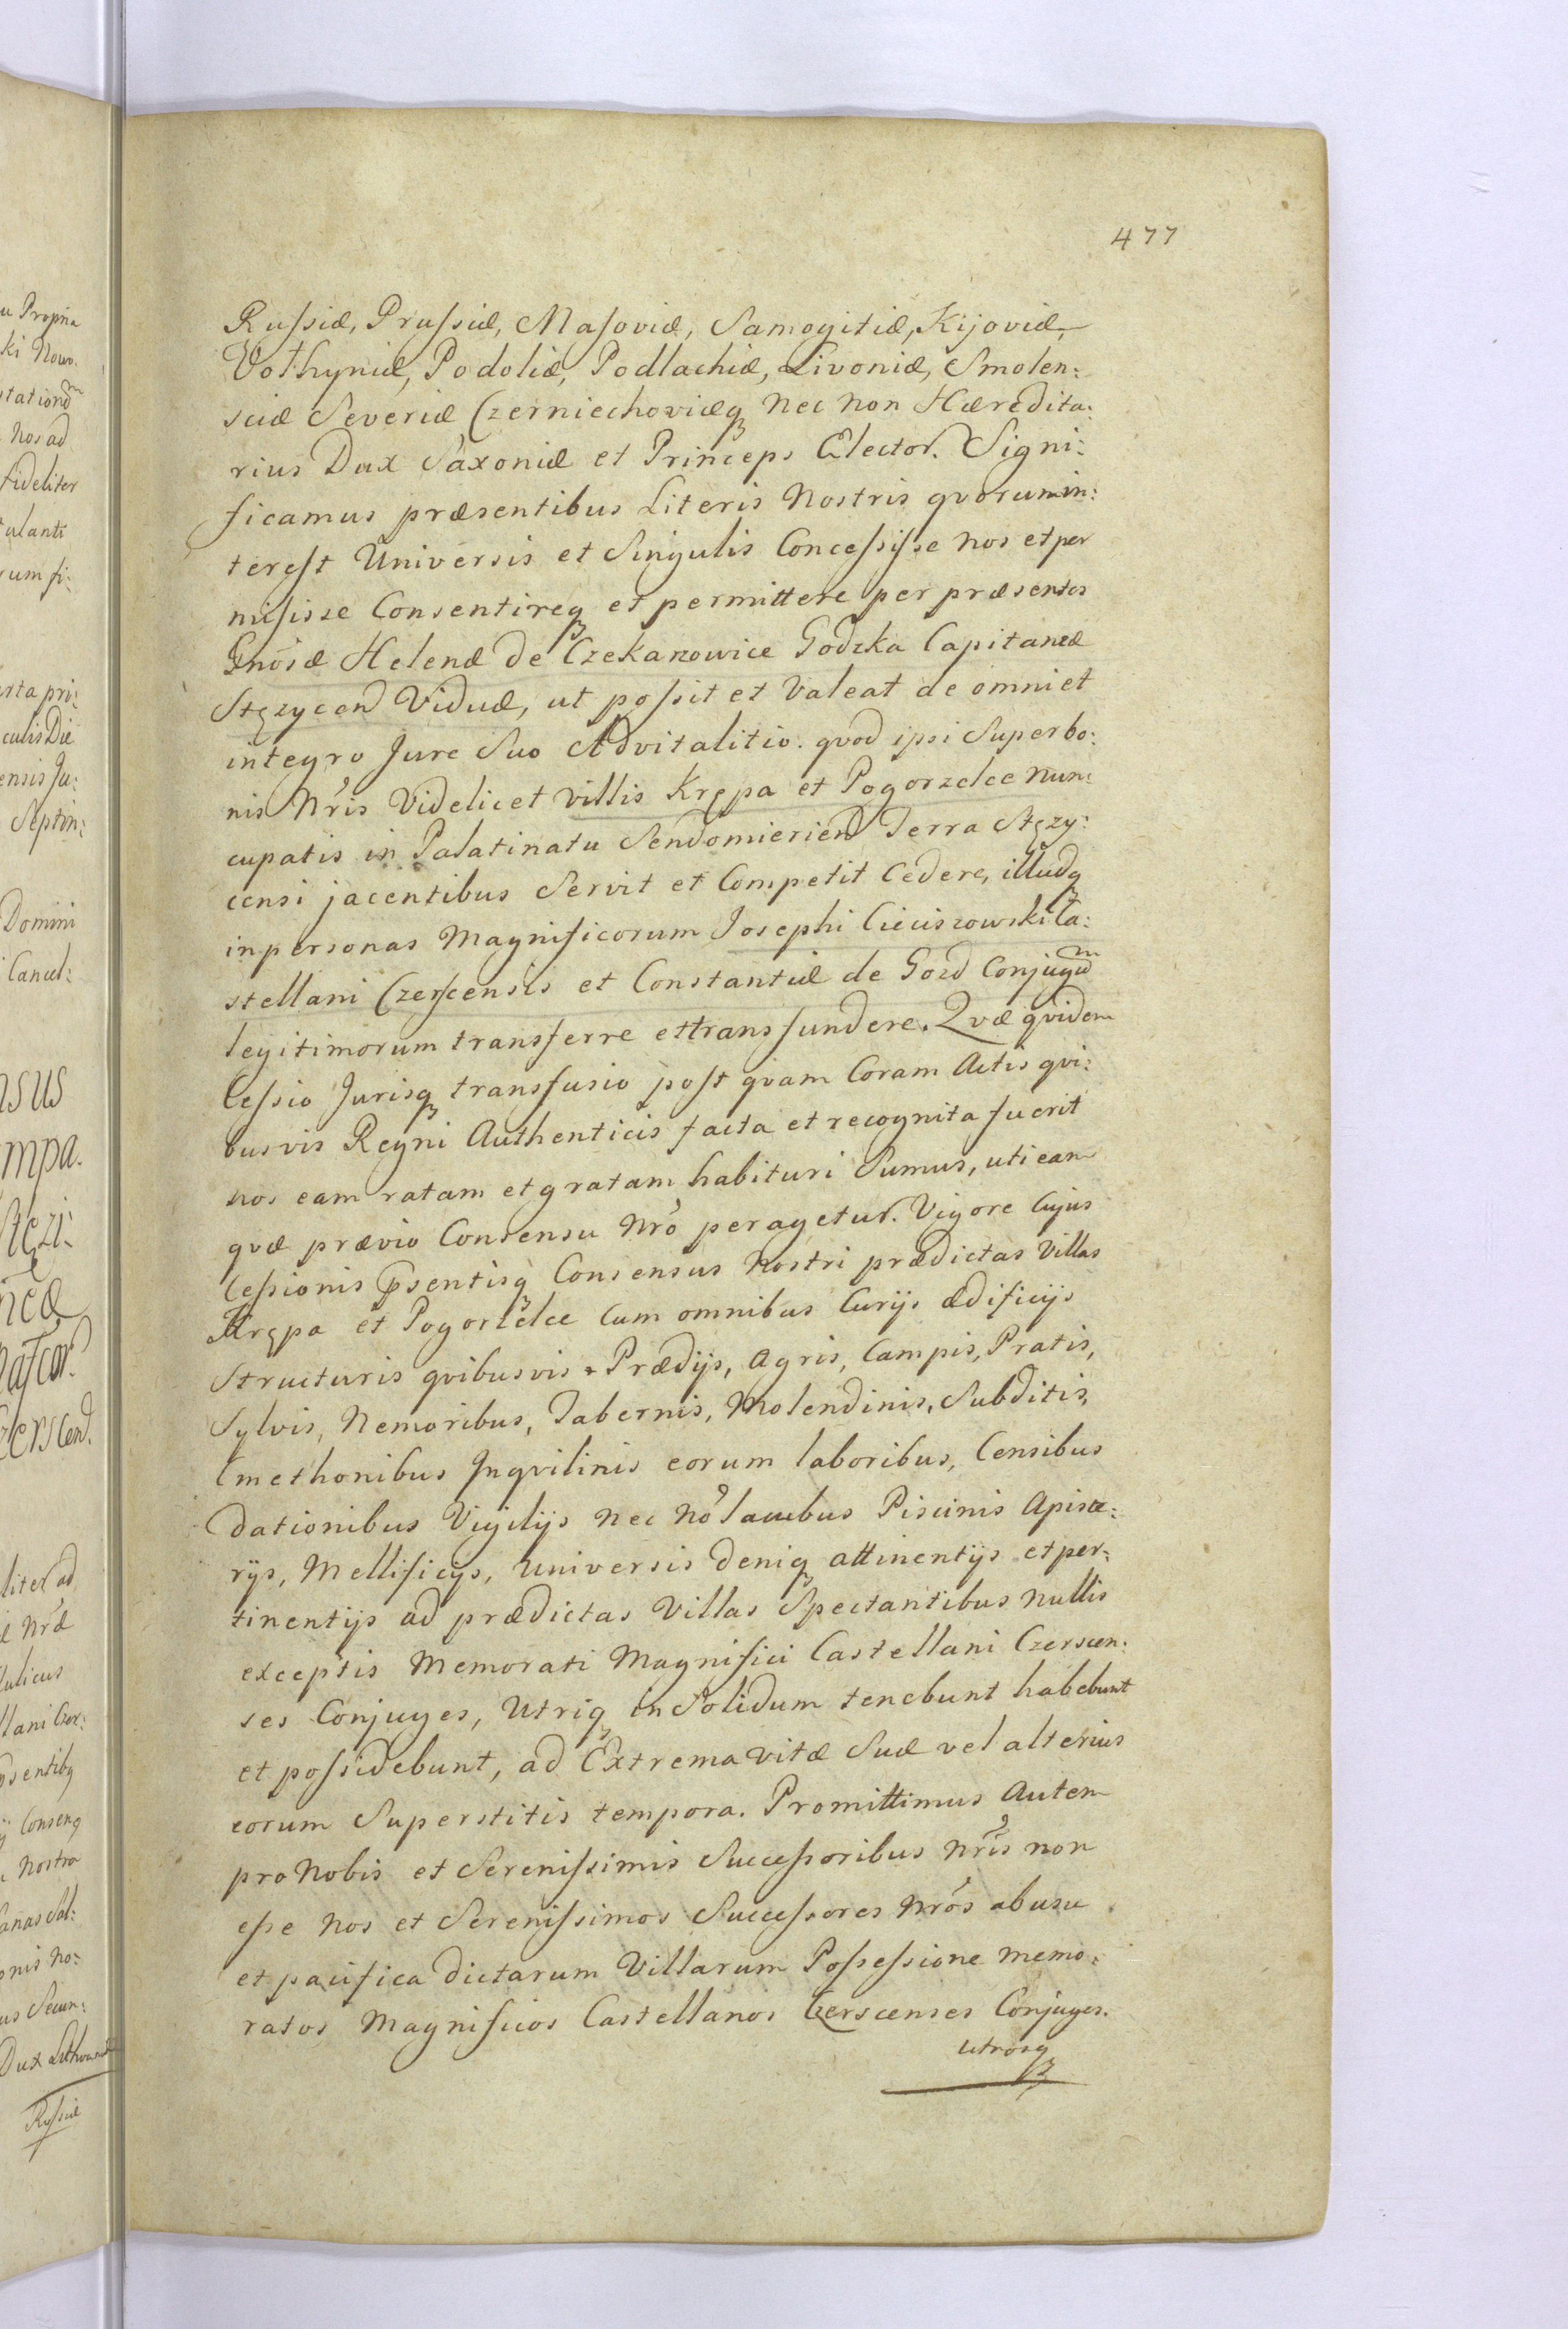 477
Rußiæ, Prußiæ, Masoviæ, Samogitiæ, Kijoviæ,
Volhyniæ, Podoliæ, Podlachiæ, Livoniæ, Smolen:
sciæ Severiæ Czerniechoviæq₃ Nec non Hæredita:
rius Dux Saxoniæ et Princeps Elector. Signi:
ficamus præsentibus Literis Nostris qvorum in:
terest Universis et Singulis Conceßisse nos et per
misisse Consentireq₃ et permittere per præsentes
Gnosæ Helenæ de Czekanowice Godzka Capitaneæ
Stęzycen Viduæ, ut poßit et Valeat de omni et
integro Jure Suo Advitalitio. qvod ipsi Super bo:
nis Nris Videlicet Villis Krępa et Pogorzelce nun:
cupatis in Palatinatu Sendomirien Terra Stęzy:
censi jacentibus Servit et Competit Cedere, illudq₃
in personas Magnificorum Josephi Cieciszowski Ca:
stellani Czerscensis et Constantiæ de Gozd Conjugum
legitimorum transferre et transfundere. Qvæ qvidem
Ceßio Jurisq₃ transfusio post qvam Coram Actis qvi:
busvis Regni Authenticis facta et recognita fuerit
nos eam ratam et gratam habituri Sumus, uti eam
qvæ prævio Consensu Nrõ peragetur. Vigore Cujus
Ceßionis p̃sentisq₃ Consensus Nostri prædictas Villas
Krępa et Pogorzelce Cum omnibus Curijs ædificijs
Structuris qvibusvis Prædijs, Agris, Campis, Pratis,
Sylvis, Nemoribus, Tabernis, Molendinis, Subditis,
Cmethonibus Inqvilinis eorum laboribus, Censibus
dationibus Vigilijs Nec nõ lacubus Piscinis Apiea:
rijs, Mellificijs, Universis deniq₃ attinentijs et per:
tinentijs ad prædictas Villas Spectantibus nullis
exceptis Memorati Magnifici Castellani Czerscen:
ses Conjuges, Utriq₃ in Solidum tenebunt habebunt
et poßidebunt, ad Extrema vitæ Suæ vel alterius
eorum Superstitis tempora. Promittimus Autem
pro Nobis et Serenißimis Succeßoribus Nris non
eße Nos et Serenißimos Succeßores Nrõs ab usu
et pacifica dictarum Villarum Poßeßione memo:
ratos Magnificos Castellanos Czerscenses Conjuges.
utrosq₃